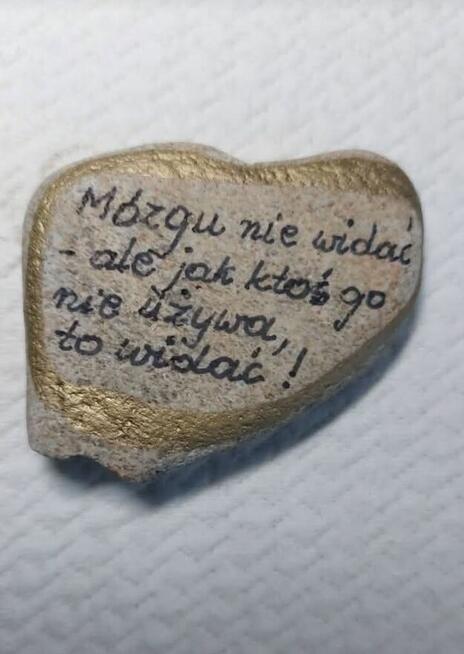 Mózgu nie widać
- ale jak ktoś go
nie używa,
to widać!